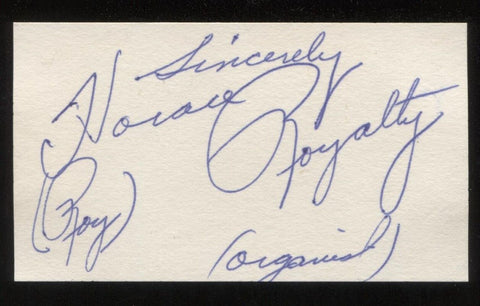 Sincerely
Horace Royalty
(Roy)
(organist)